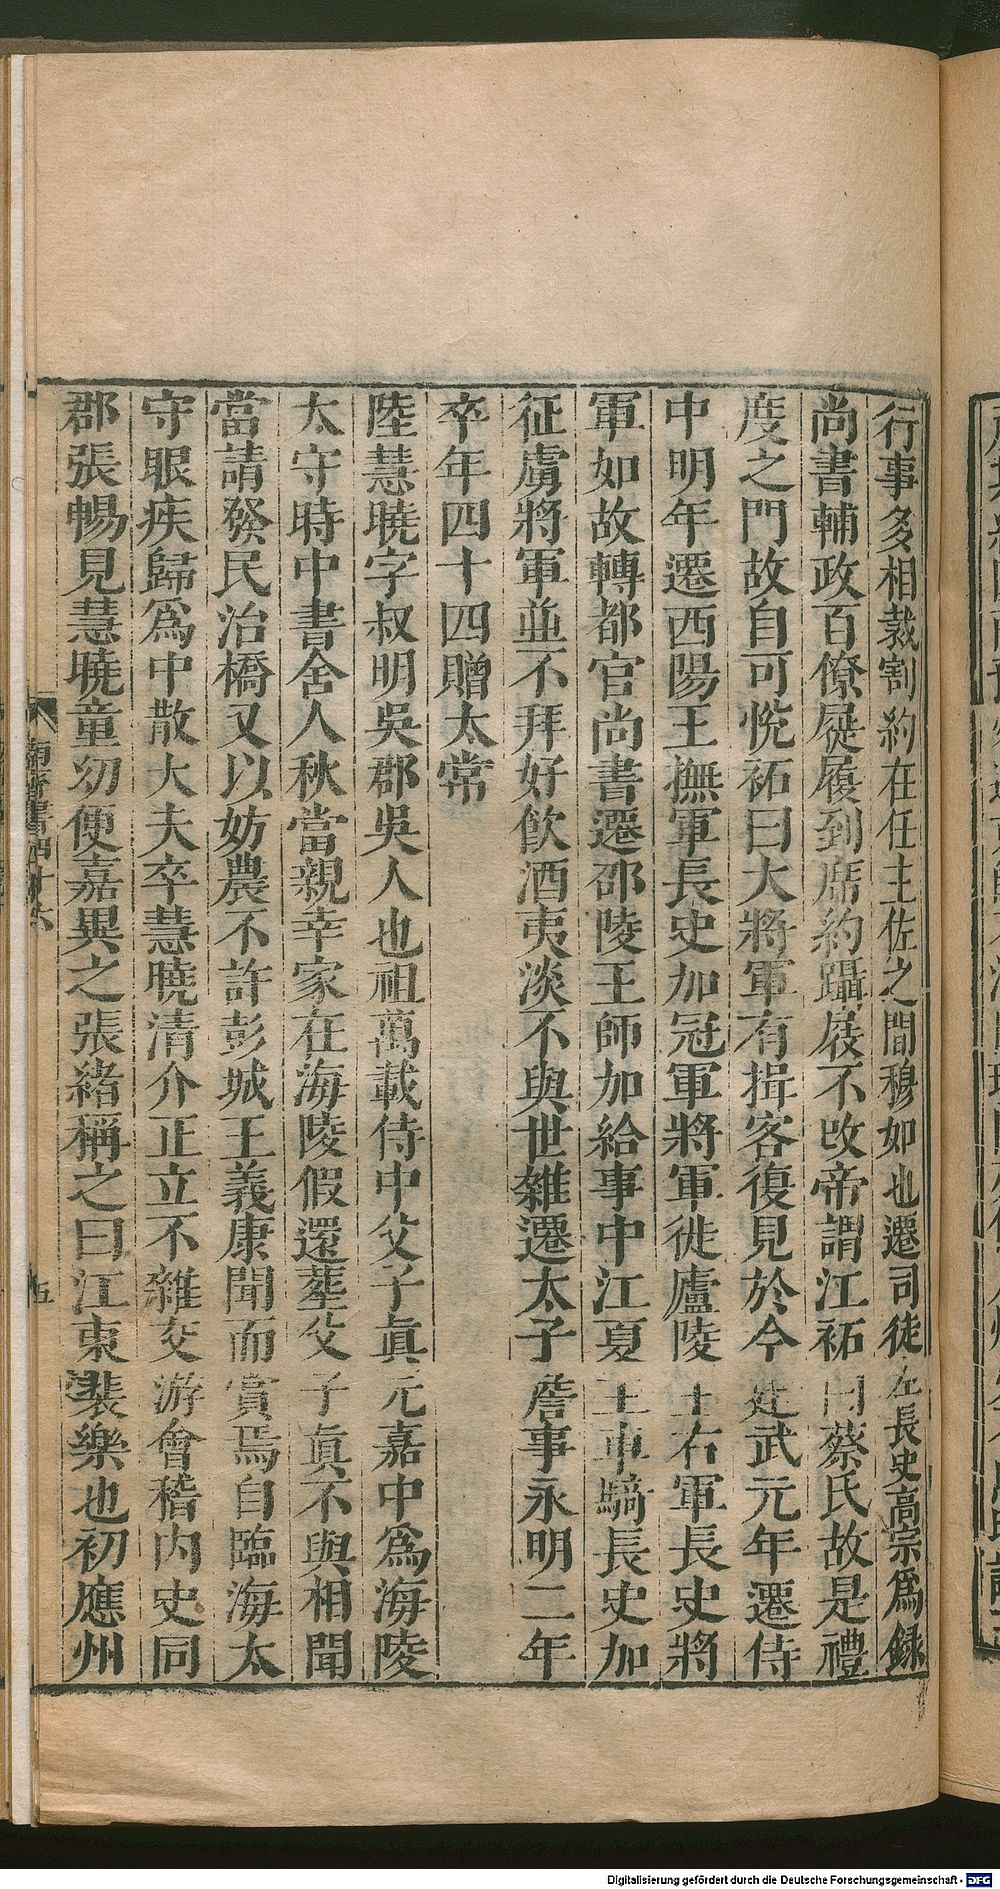 行事多相裁割約在任主佐之間穆如也遷司徒左長史高宗爲錄
尚書輔政百僚屣履到席約躡屐不改帝謂江祏曰蔡氏故是禮
度之門故自可悅祏曰大將軍有揖客復見於今建武元年遷侍
中明年遷西陽王撫軍長史加冠軍將軍徙廬陵王右軍長史將
軍如故轉都官尚書遷邵陵王師加給事中江夏王車騎長史加
征虜將軍並不拜好飲酒夷淡不與世雜遷太子詹事永明二年
卒年四十四贈太常
陸慧曉字叔明吳郡吳人也祖萬載侍中父子真元嘉中爲海陵
太守時中書舍人秋當親幸家在海陵假還葬父子真不與相聞
當請發民治橋又以妨農不許彭城王義康聞而賞焉自臨海太
守眼疾歸爲中散大夫卒慧曉清介正立不雜交游會稽內史同
郡張暢見慧曉童幼便嘉異之張緒稱之曰江東裴樂也初應州
南齊書四十六
五
Digitalisierung gefördert durch die Deutsche Forschungsgemeinschaft - DFG